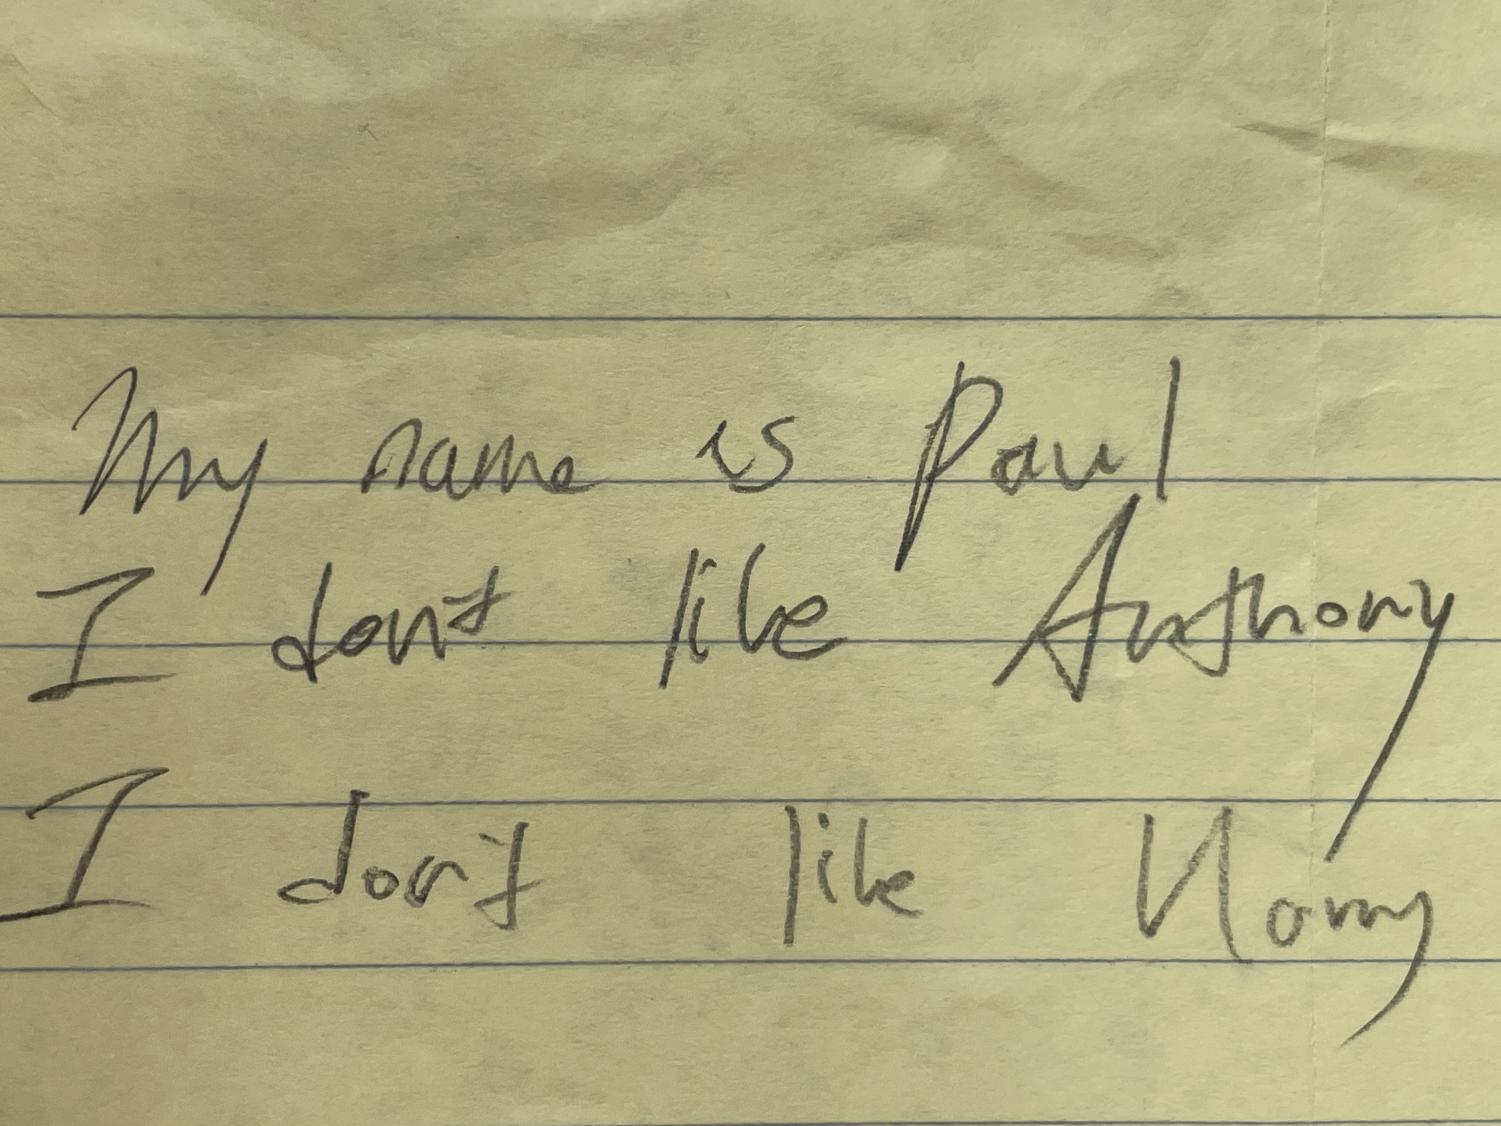 My name is Paul
I don't like Anthony
I don't like Harry